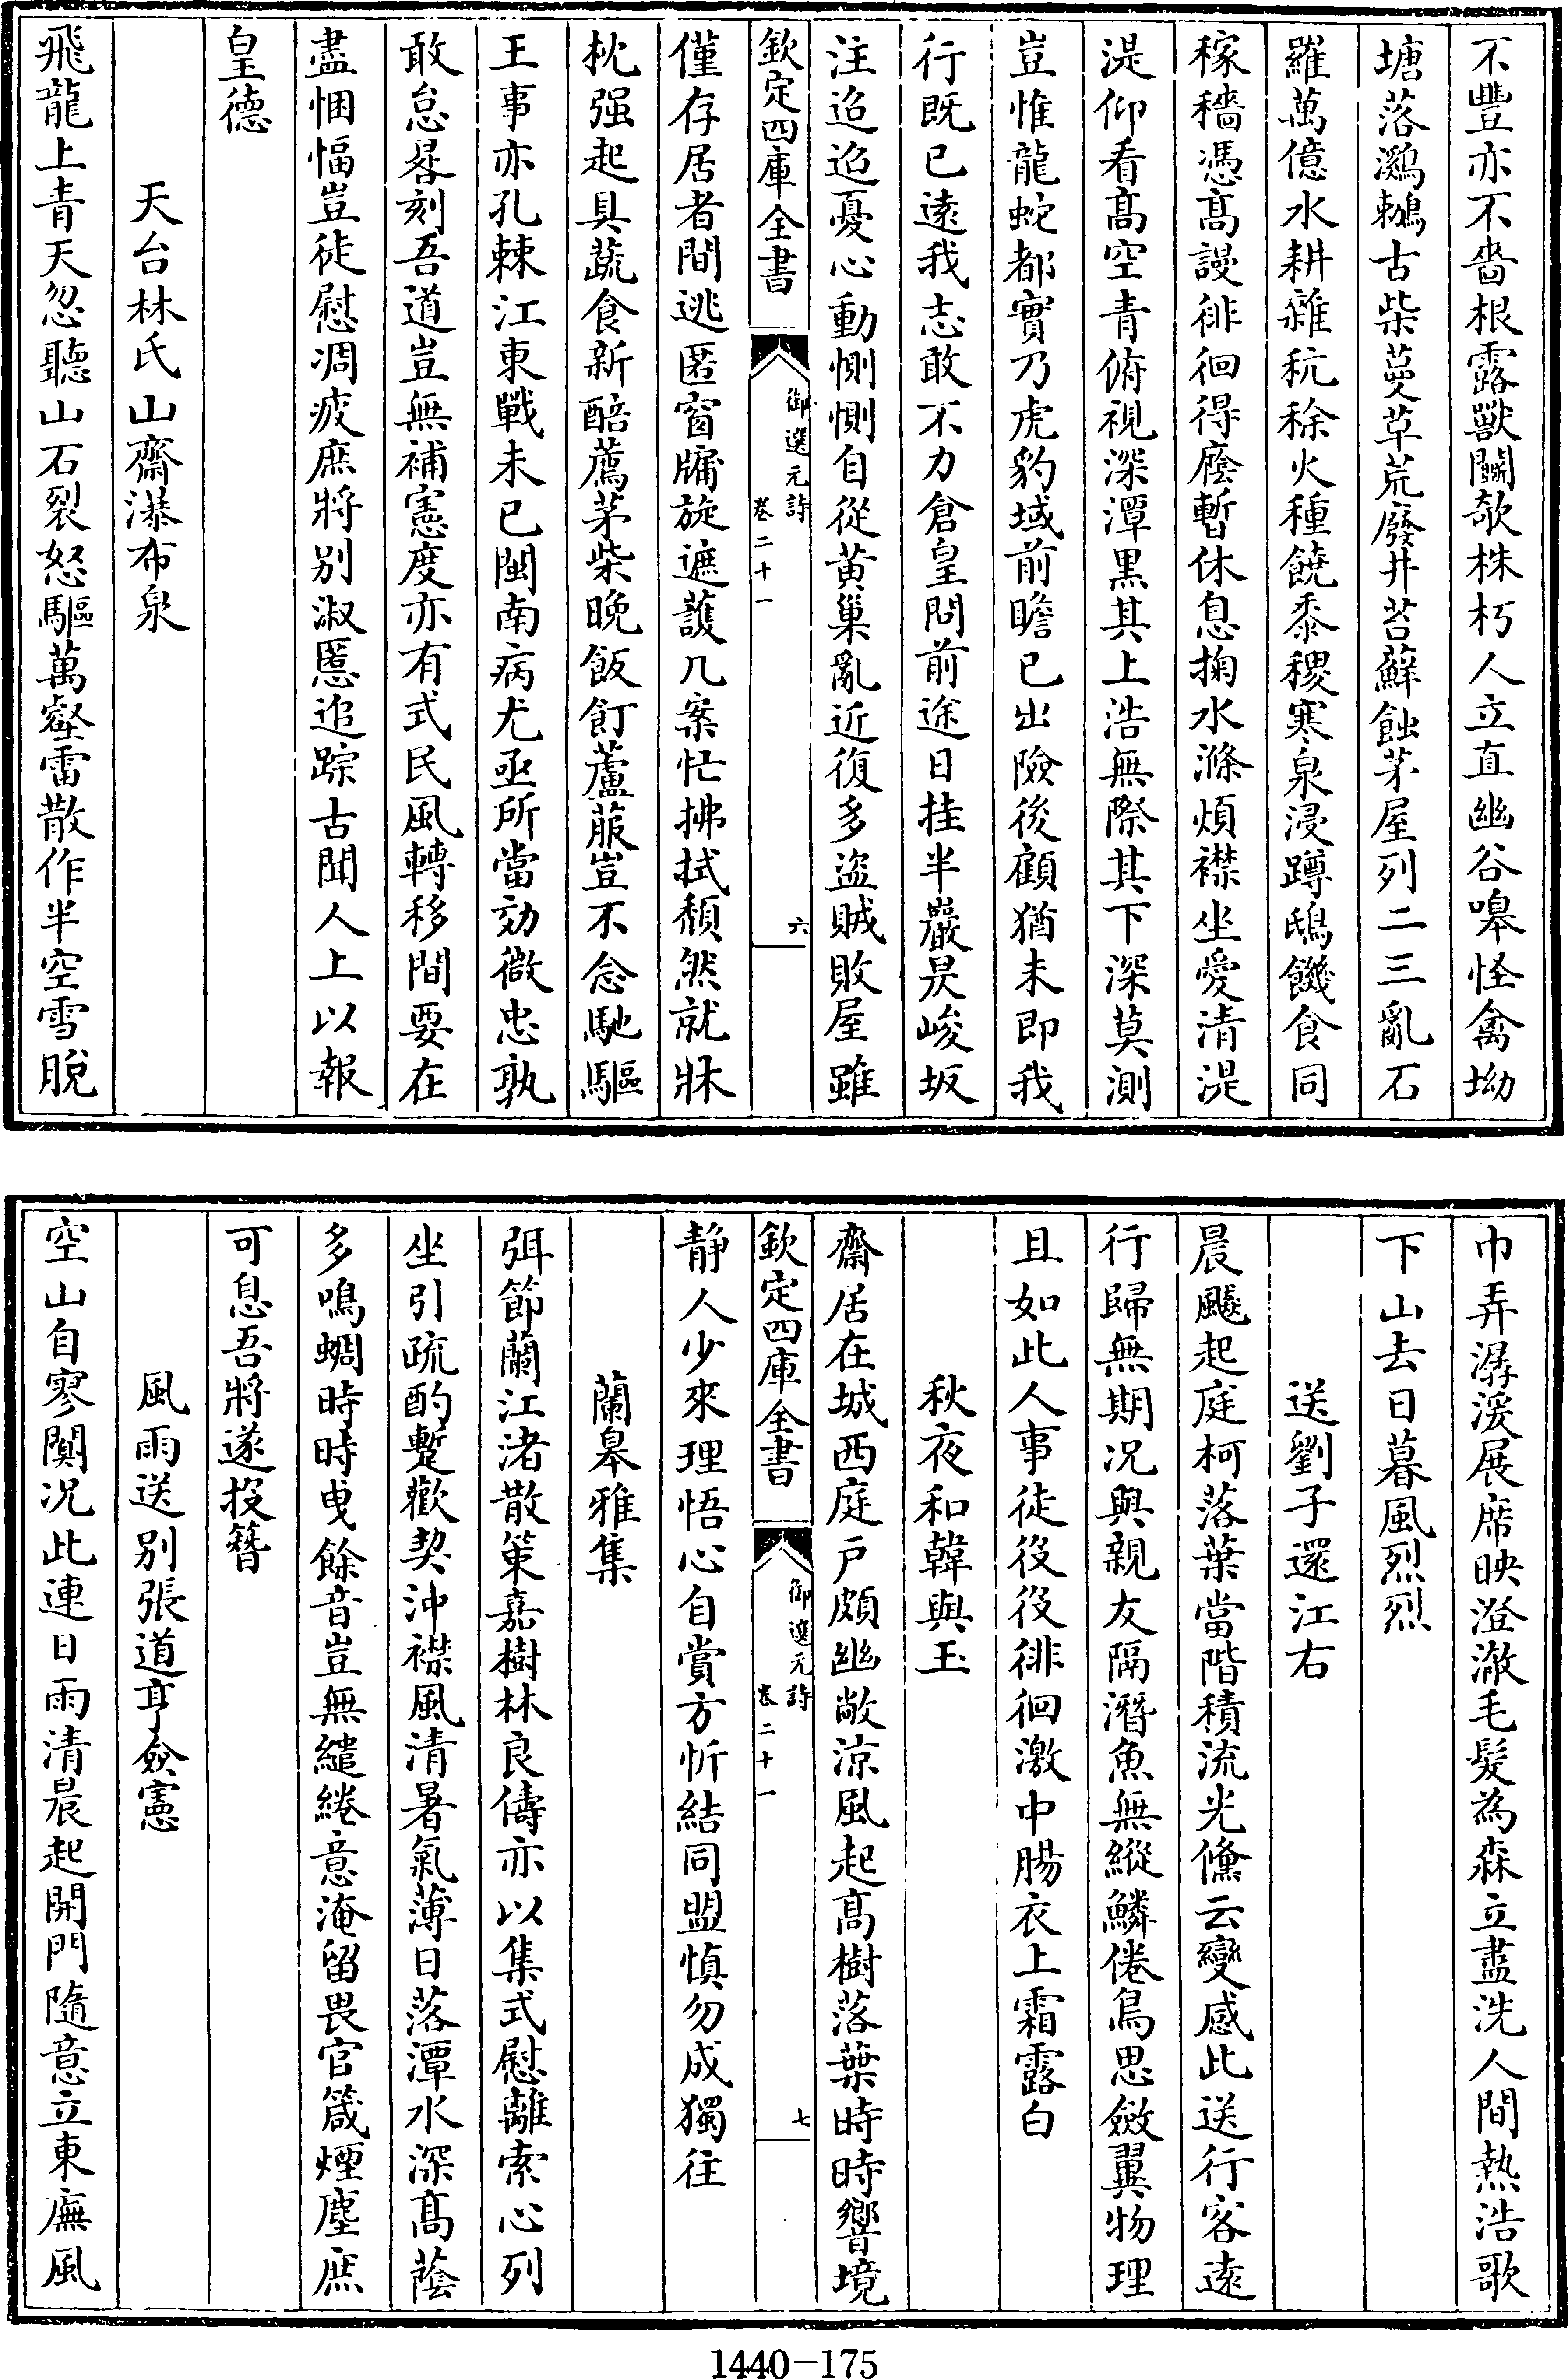 不豐亦不啬根露獸鬭欹株朽人立直幽谷嘷怪禽坳
塘落鸂鶒古柴蔓草荒廢井苔蘚蝕茅屋列二三亂石
羅萬億水耕雜秔稌火種饒黍稷寒泉浸蹲鴟饑食同
稼穡憑髙謖徘徊得廕暫休息掬水滌煩襟坐愛清湜
湜仰看髙空青俯視深潭黒其上浩無際其下深莫測
豈惟龍蛇都實乃虎豹域前瞻已出險後顧猶未即我
行既已逺我志敢不力倉皇問前途日挂半巖昃峻坂
注迢迢憂心動惻惻自從黄巢亂近復多盜賊敗屋雖
欽定四庫全書
御選元詩
卷二十一
六
僅存居者間逃匿窗牖旋遮護几案忙拂拭頹然就牀
枕强起具蔬食新醅薦茅柴晚飯飣蘆菔豈不念馳驅
王事亦孔棘江東戰未已閩南病尤亟所當効微忠孰
敢怠晷刻吾道豈無補憲度亦有式民風轉移間要在
盡悃愊豈徒慰凋疲庶將别淑慝追踪古聞人上以報
皇德
天台林氏山齋瀑布泉
飛龍上青天忽聽山石裂怒驅萬壑雷散作半空雪脫
巾弄潺湲展席映澄澈毛髮為森立盡洗人間熱浩歌
下山去日暮風烈烈
送劉子還江右
晨飇起庭柯落葉當階積流光儵云變感此送行客逺
行歸無期况與親友隔潛魚無縱鱗倦鳥思斂翼物理
且如此人事徒役役徘徊激中腸衣上霜露白
秋夜和韓與玉
齋居在城西庭戶頗幽敞涼風起髙樹落葉時時響境
欽定四庫全書
御選元詩
卷二十一
七
靜人少來理悟心自賞方忻結同盟慎勿成獨往
蘭皋雅集
弭節蘭江渚散策嘉樹林良儔亦以集式慰離索心列
坐引疏酌蹔歡契沖襟風清暑氣薄日落潭水深髙蔭
多鳴蜩時時曳餘音豈無繾綣意淹留畏官箴煙塵庶
可息吾將遂投簪
風雨送别張道亨僉憲
空山自寥闃况此連日雨清晨起開門隨意立東廡風
1440-175